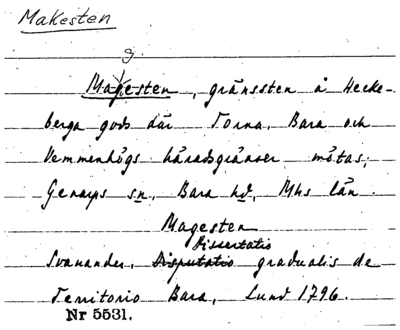 Makesten
g
Makesten, gränssten å Hecke-
berga gods där Torna, Bara och
Vemmenhögs häradsgränser mötas;
Genarps sn, Bara hd, Mhs län.
Magesten
Dissertatio
Svanander, Disputatio gradualis de
Territorio Bara, Lund 1796.
Nr 5531.